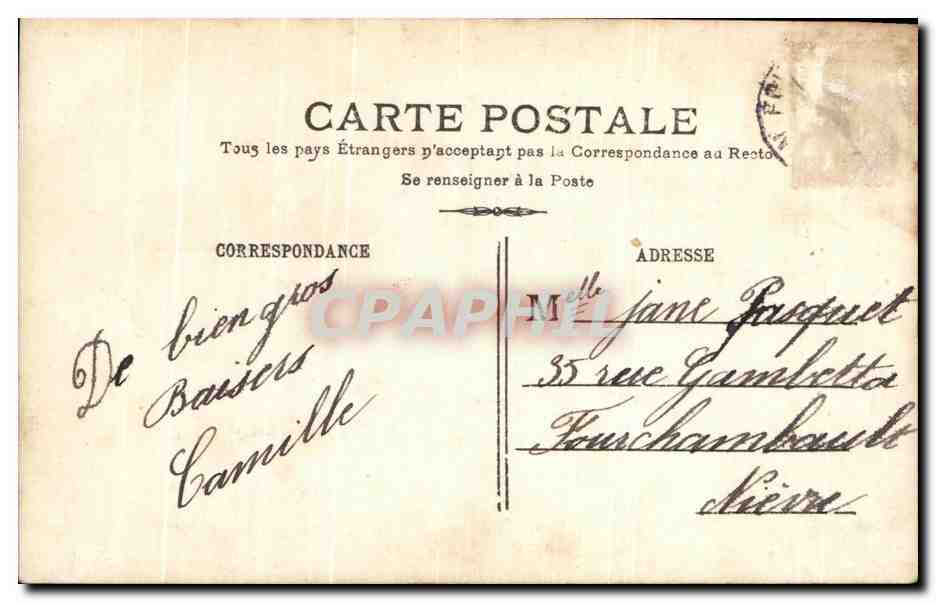 CARTE POSTALE
Tous les pays Étrangers n'acceptant pas la Correspondance au Recto
Se renseigner à la Poste
CORRESPONDANCE
De bien gros
Baisers
Camille
ADRESSE
Melle Jane Pasquet
35 rue Gambetta
Fourchambault
Nièvre
CPAPHIL